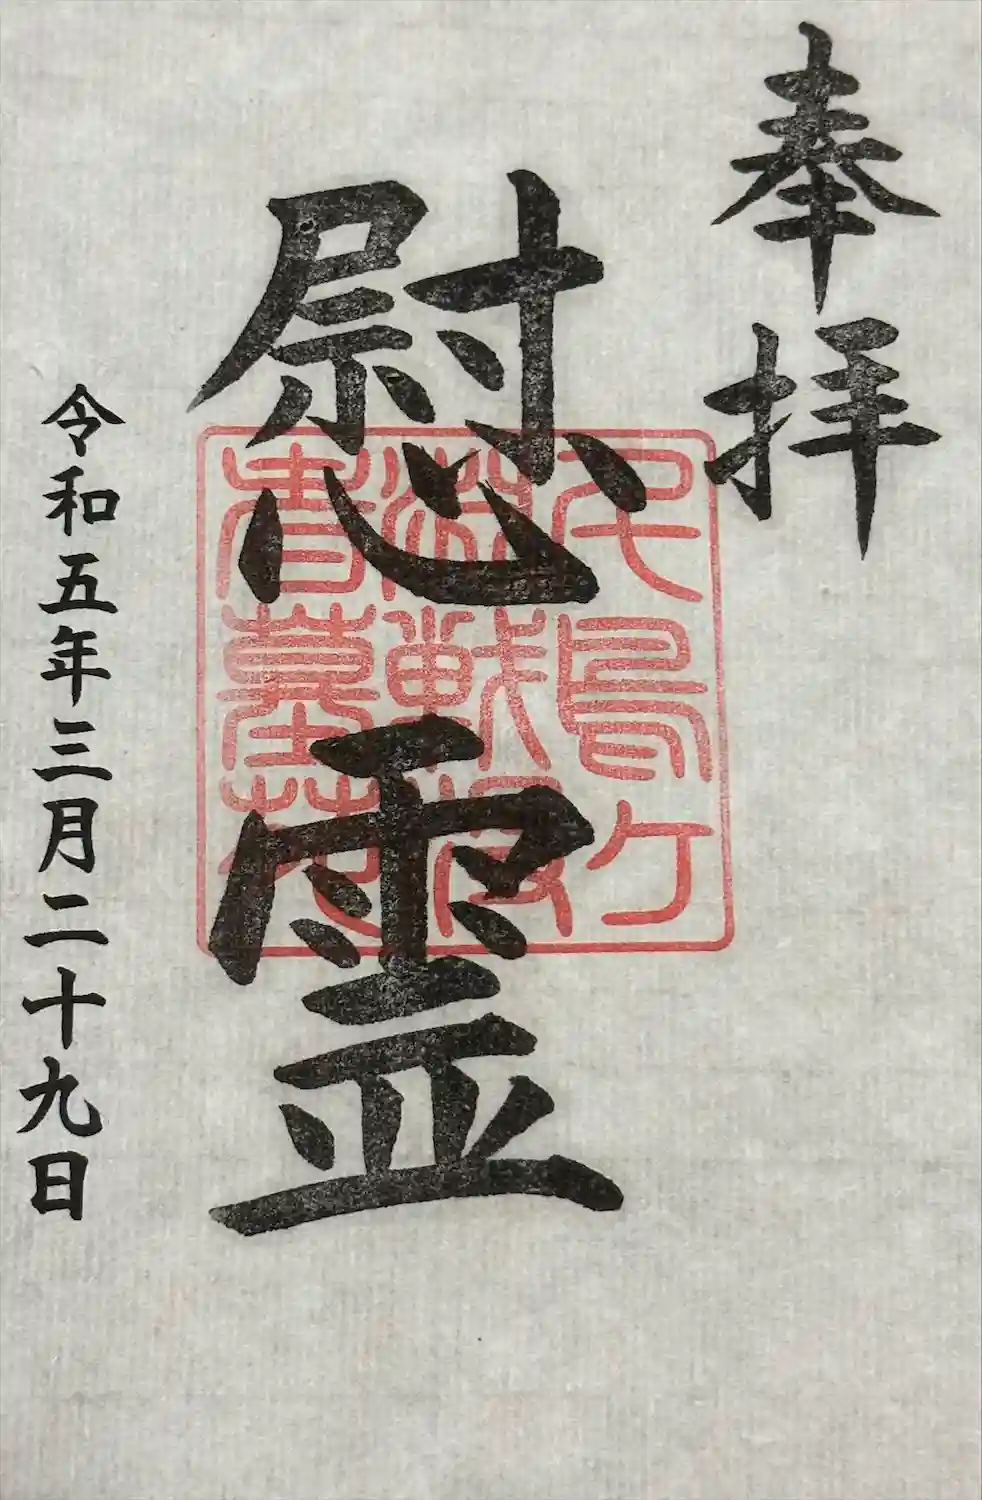 奉拝
慰霊
千鳥ケ
淵戦没
者墓苑
令和五年三月二十九日